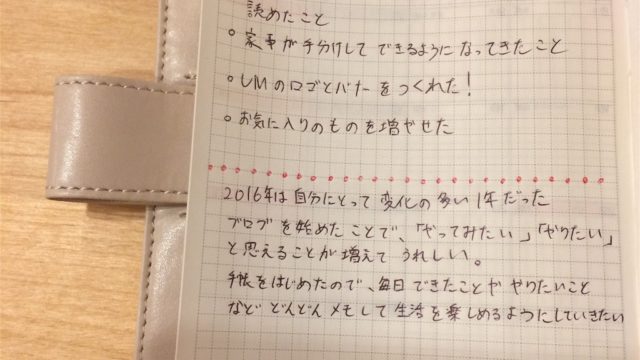 読めたこと
○ 家事が手分けしてできるようになってきたこと
○ LMのロゴとバナーをつくれた!
○ お気に入りのものを増やせた
2016年は自分にとって変化の多い1年だった
ブログを始めたことで、「やってみたい」「やりたい」
と思えることが増えてうれしい。
手帳をはじめたので、毎日できたことややりたいこと
などどんどんメモして生活を楽しめるようにしていきたい